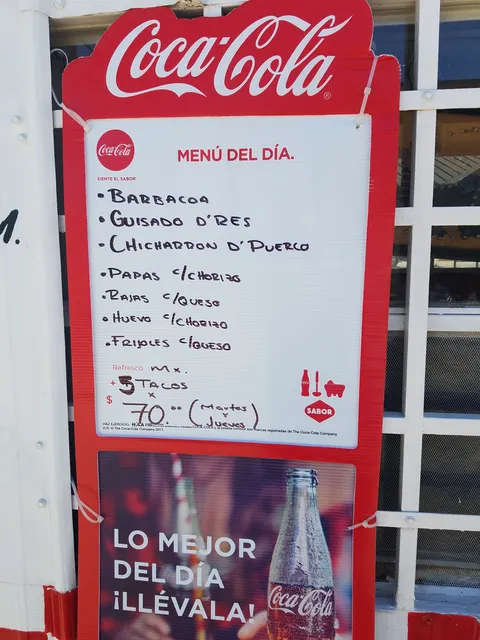 Coca-Cola®
Coca-Cola
SIENTE EL SABOR
MENÚ DEL DÍA.
• BARBACOA
• GUISADO D'RES
• CHICHARRON D'PUERCO
• PAPAS C/CHORIZO
• RAJAS C/QUESO
• HUEVO C/CHORIZO
• FRIJOLES C/QUESO
Refresco Mx.
+ 5 TACOS
x
$ 70.00 (Martes y Jueves)
SABOR
M.
LO MEJOR
DEL DÍA
¡LLÉVALA!
Coca-Cola